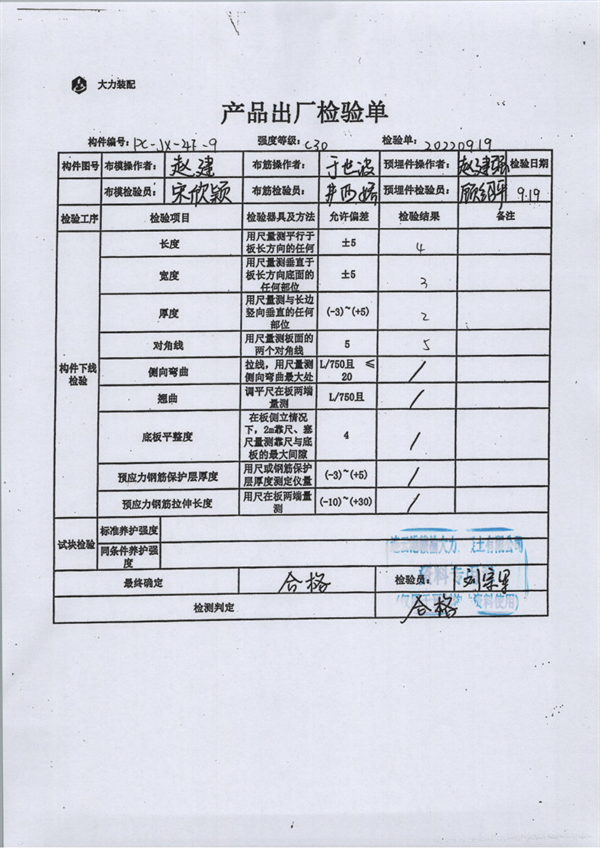 大力装配
产品出厂检验单
构件编号: PC-JX-4F-9 强度等级: C30 检验单: 20220919
构件图号 布模操作者: 赵建 布筋操作者: 于世波 预埋件操作者: 赵建强 检验日期
布模检验员: 宋欣颖 布筋检验员: 预埋件检验员: 9.19
检验工序 检验项目 检验器具及方法 允许偏差 检验结果 备注
构件下线检验
长度 用尺量测平行于板长方向的任何 ±5 4
宽度 用尺量测垂直于板长方向底面的任何部位 ±5 3
厚度 用尺量测与长边竖向垂直的任何部位 (-3)~(+5) 2
对角线 用尺量测板面的两个对角线 5 5
侧向弯曲 拉线，用尺量测侧向弯曲最大处 L/750且 ≤20 /
翘曲 调平尺在板两端量测 L/750且 /
底板平整度 在板侧立情况下，2m靠尺、塞尺量测靠尺与底板的最大间隙 4 /
预应力钢筋保护层厚度 用尺或钢筋保护层厚度测定仪量 (-3)~(+5) /
预应力钢筋拉伸长度 用尺在板两端量测 (-10)~(+30) /
试块检验 标准养护强度
同条件养护强度
最终确定 合格 检验员:
检测判定 合格